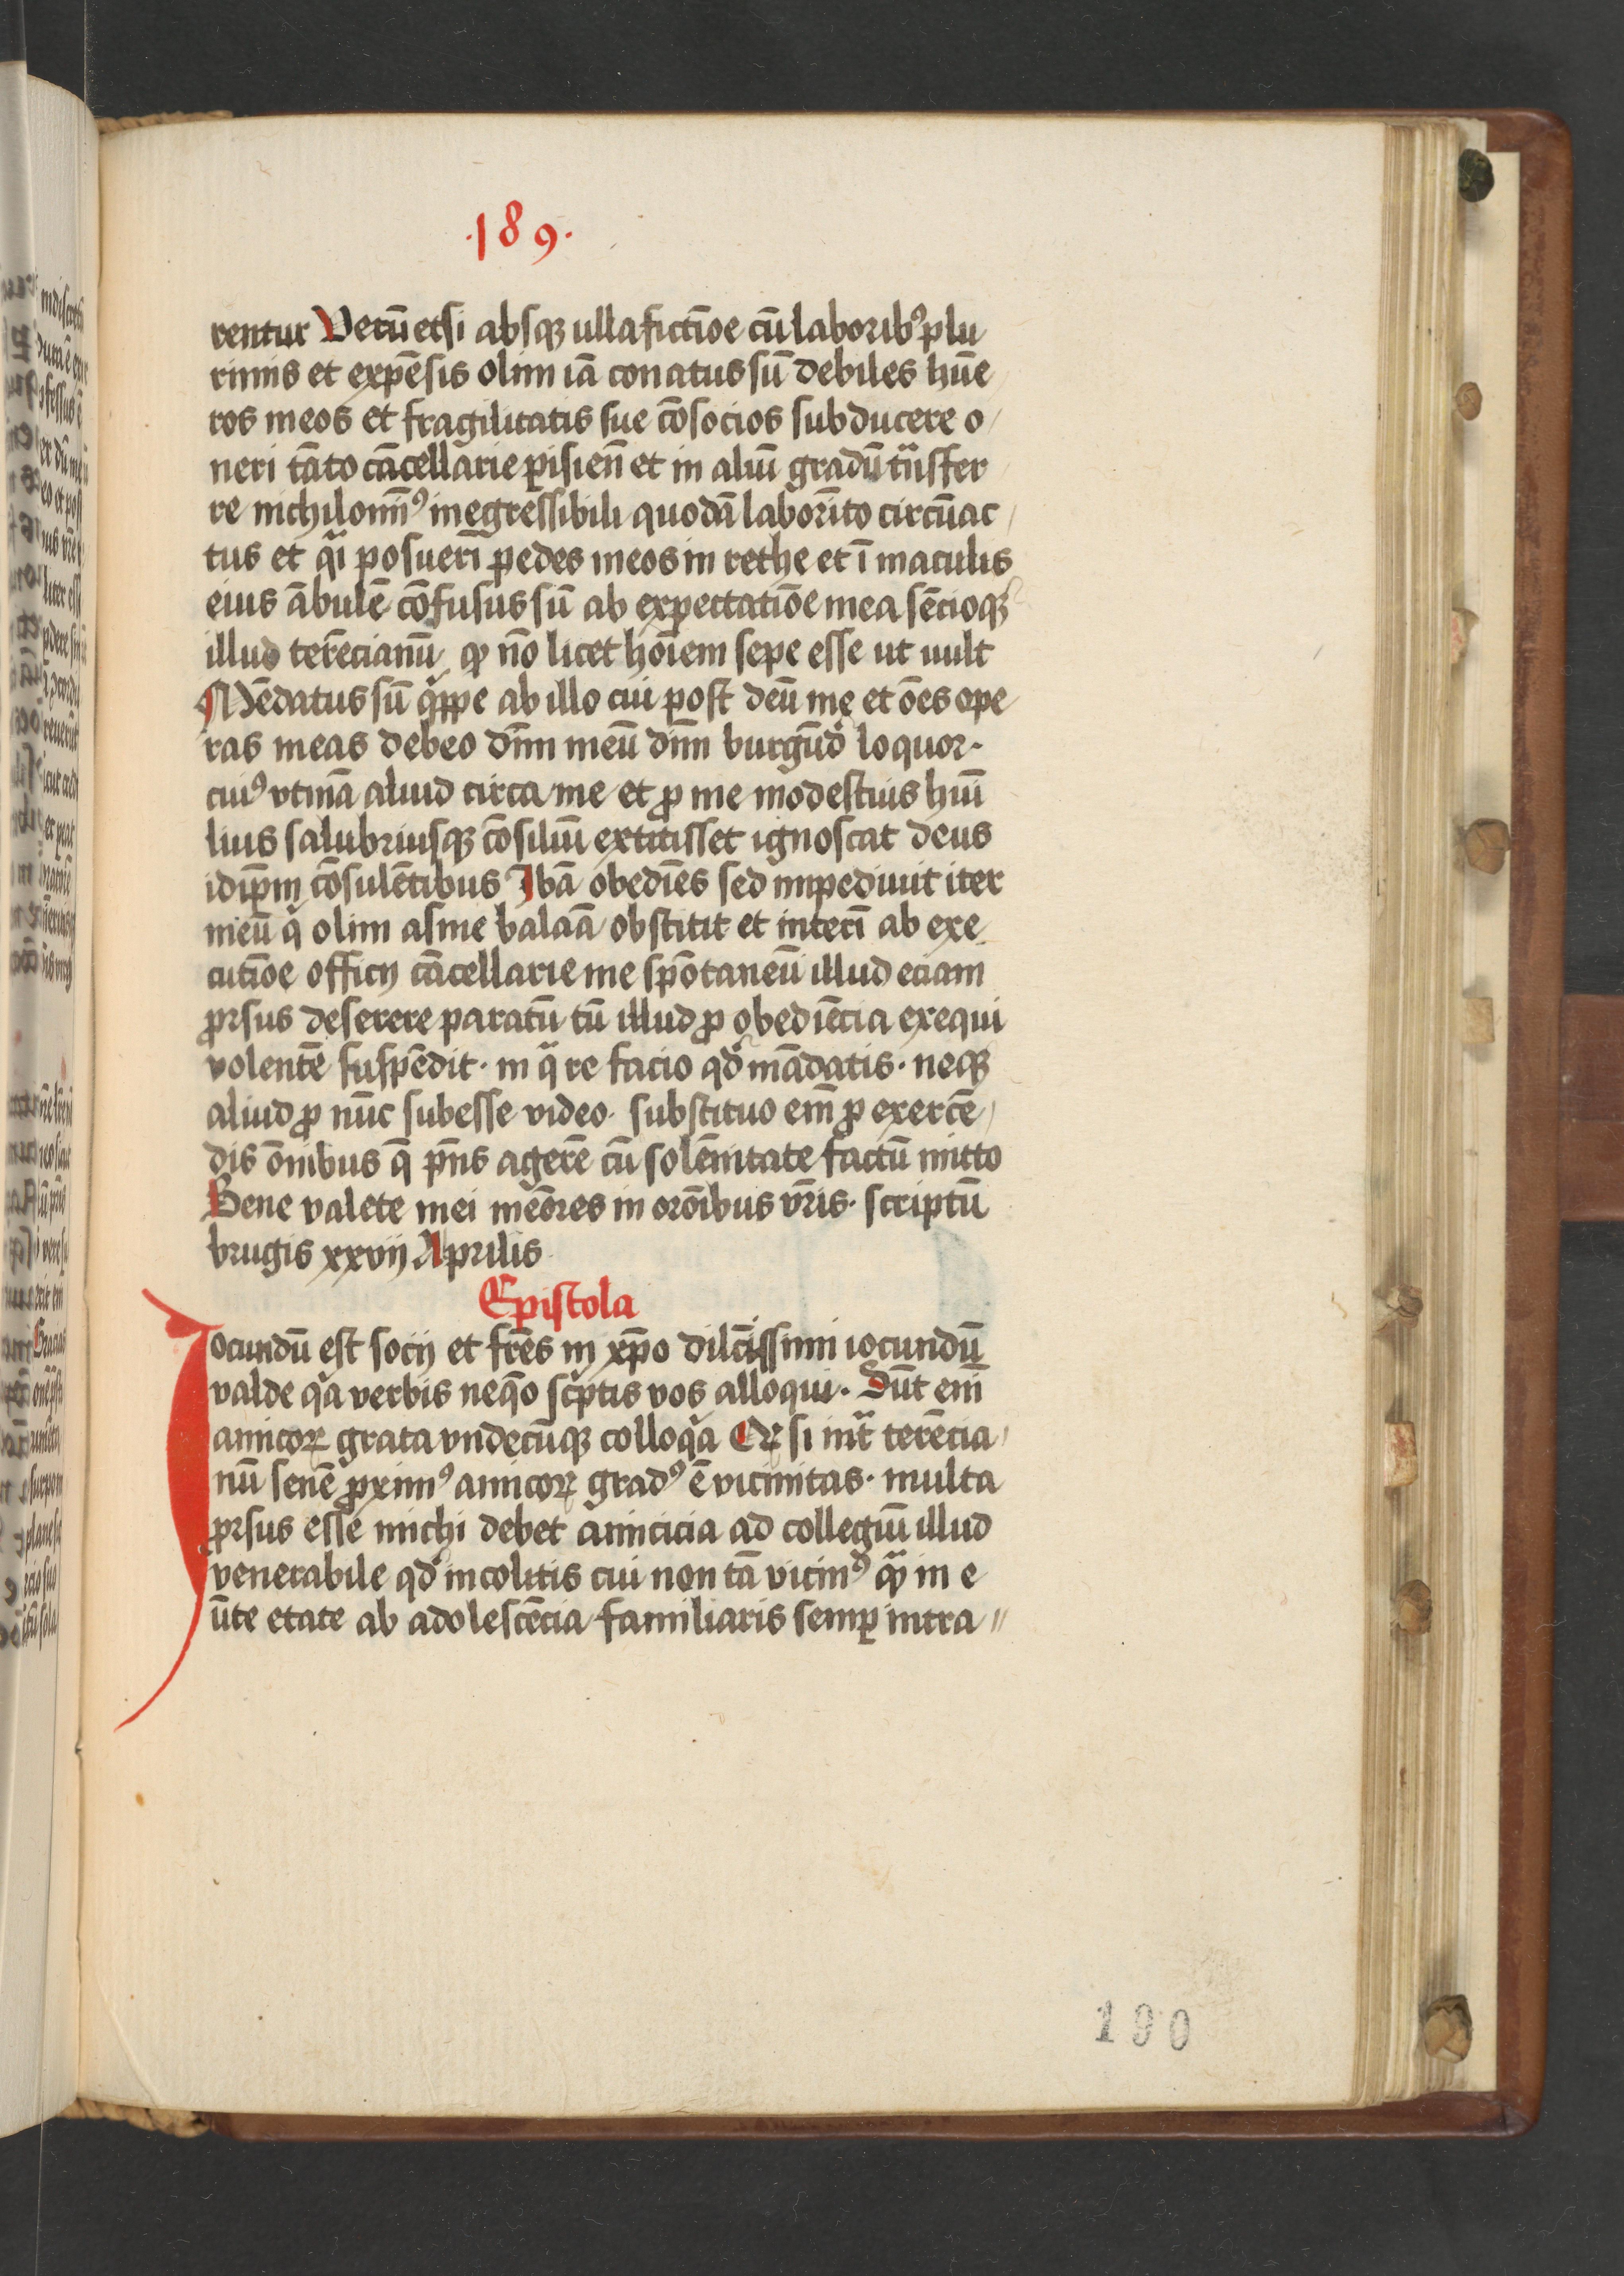 .189.
rentur Verū etsi absqꝫ ulla fictīoe cū laboribꝰ plu
rimis et expēsis olim iā conatus sū debiles hūe
ros meos et fragilitatis sue cōsocios subducere o/
neri tāto cācellarie pisieñ et in aliū gradū trāsfer
re nichilomīꝰ inegressibili quodā laborīto circūac/
tus et qͣi posuerī pedes meos in rethe et ī maculis
eius ābulē cōfusus sū ab expectatiōe mea sēcioqꝫ
illud terēcianū ꝙ nō licet hoīem sepe esse ut uult
Mēdatus sū qͥppe ab illo cui post deū me et oēs ope
ras meas debeo dn̄m meū dn̄m burgūd loquor.
cuiꝰ vtinā aliud circa me et ꝓ me modestius hūi
lius salubriusqꝫ cōsiliū extitisset ignoscat deus
idip̄m cōsulētibus Ibā obediēs sed impediuit iter
meū qͥ olim asine balaā obstitit et interī ab exe
cutīoe officij cācellarie me spōtaneū illud eciam
ꝓrsus deserere paratū tū illud ꝓ obediēcia exequi
volentē suspēdit. in qͣ re facio qd mādatis. neqꝫ
aliud ꝓ nūc subesse video. substituo em̄ ꝓ exercē/
dis ōnibus q̄ pn̄s agerē cū solēnitate factū mitto
Bene valete mei meōres in orōibus vr̄is. scriptū
brugis xxvij Aprilis
Epistola
Jocundū est socij et fr̄es in xp̄o dilc̄issimi iocundū
valde qͣ verbis neqͦ sc̄ptis vos alloqui. Sūt em̄
amicoꝝ grata vndecūqꝫ colloqͥa Et si iuxͣ terēcia/
nū senē ꝓximꝰ amicoꝝ gradꝰ ē vicinitas. multa
ꝓrsus esse michi debet amicicia ad collegiū illud
venerabile qd incolitis cui non tā vicinꝰ qͣꝫ in e
ūte etate ab adolescēcia familiaris semꝑ intra//
190